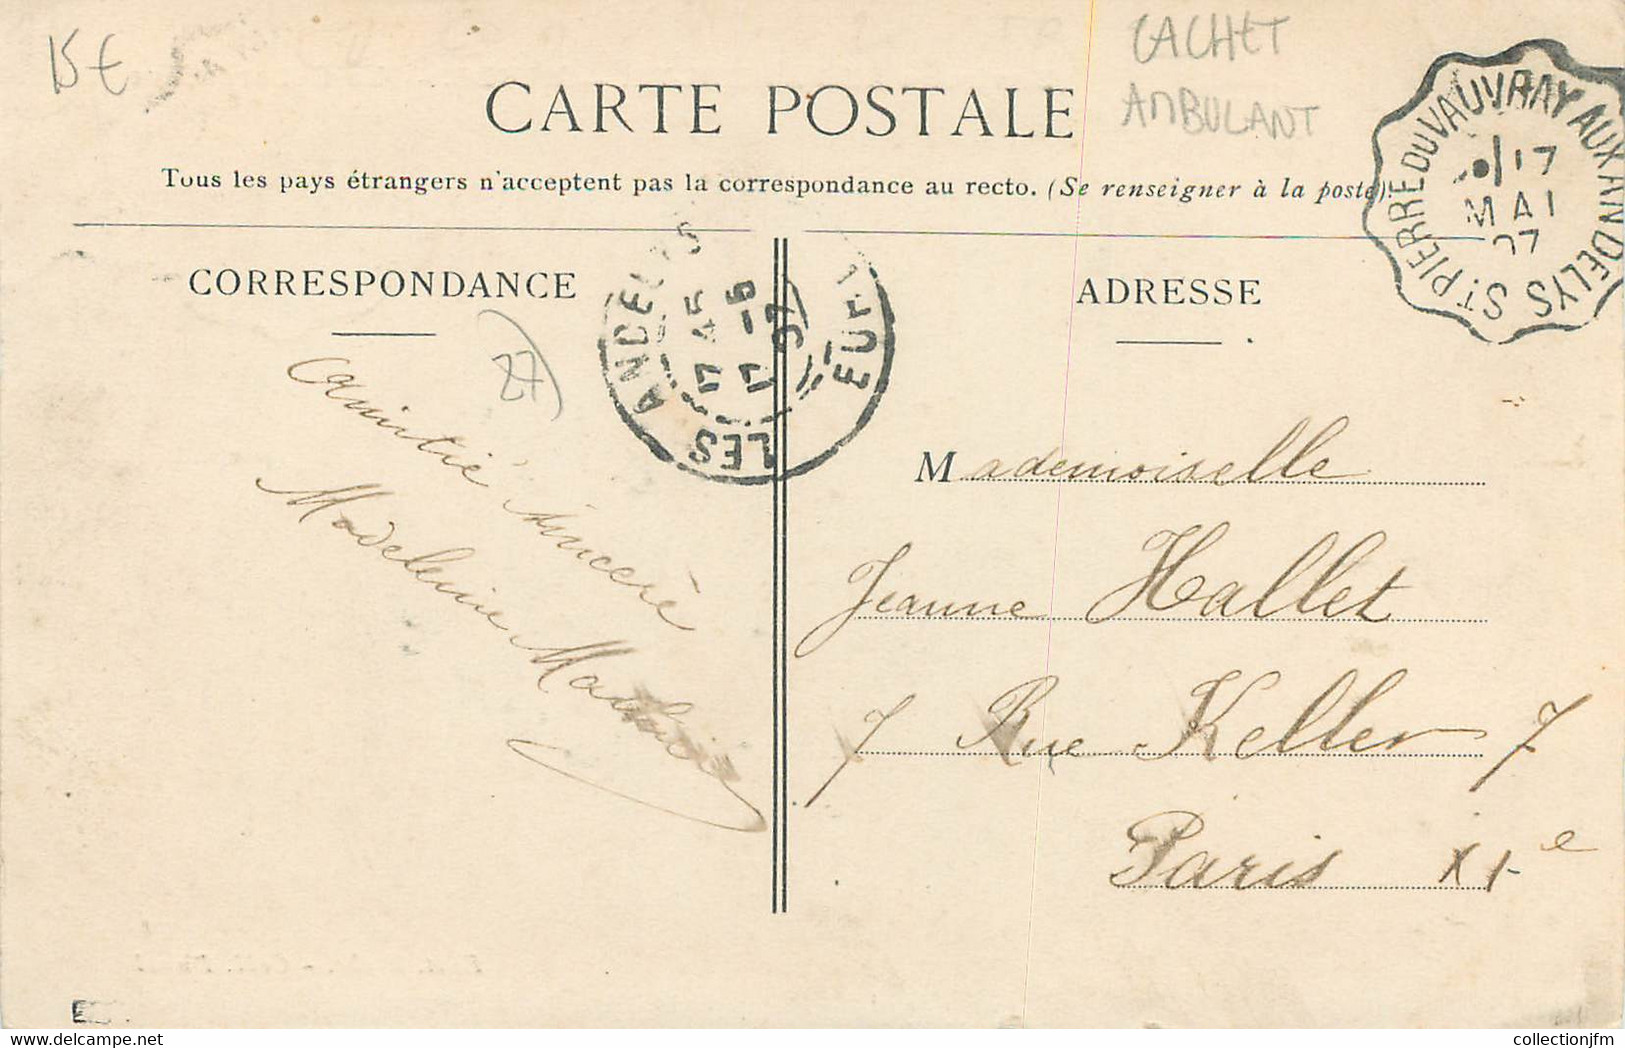 15 €
CACHET
AMBULANT
CARTE POSTALE
Tous les pays étrangers n'acceptent pas la correspondance au recto. (Se renseigner à la poste).
ST PIERRE DU VAUVRAY AUX ANDELYS
17
MAI
07
CORRESPONDANCE
ADRESSE
LES ANDELYS
EURE
17 45
17 -5
07
27
Amitié sincère
Madeleine
Mademoiselle
Jeanne Hallet
7 Rue Keller 7
Paris XIe
collectionjfm